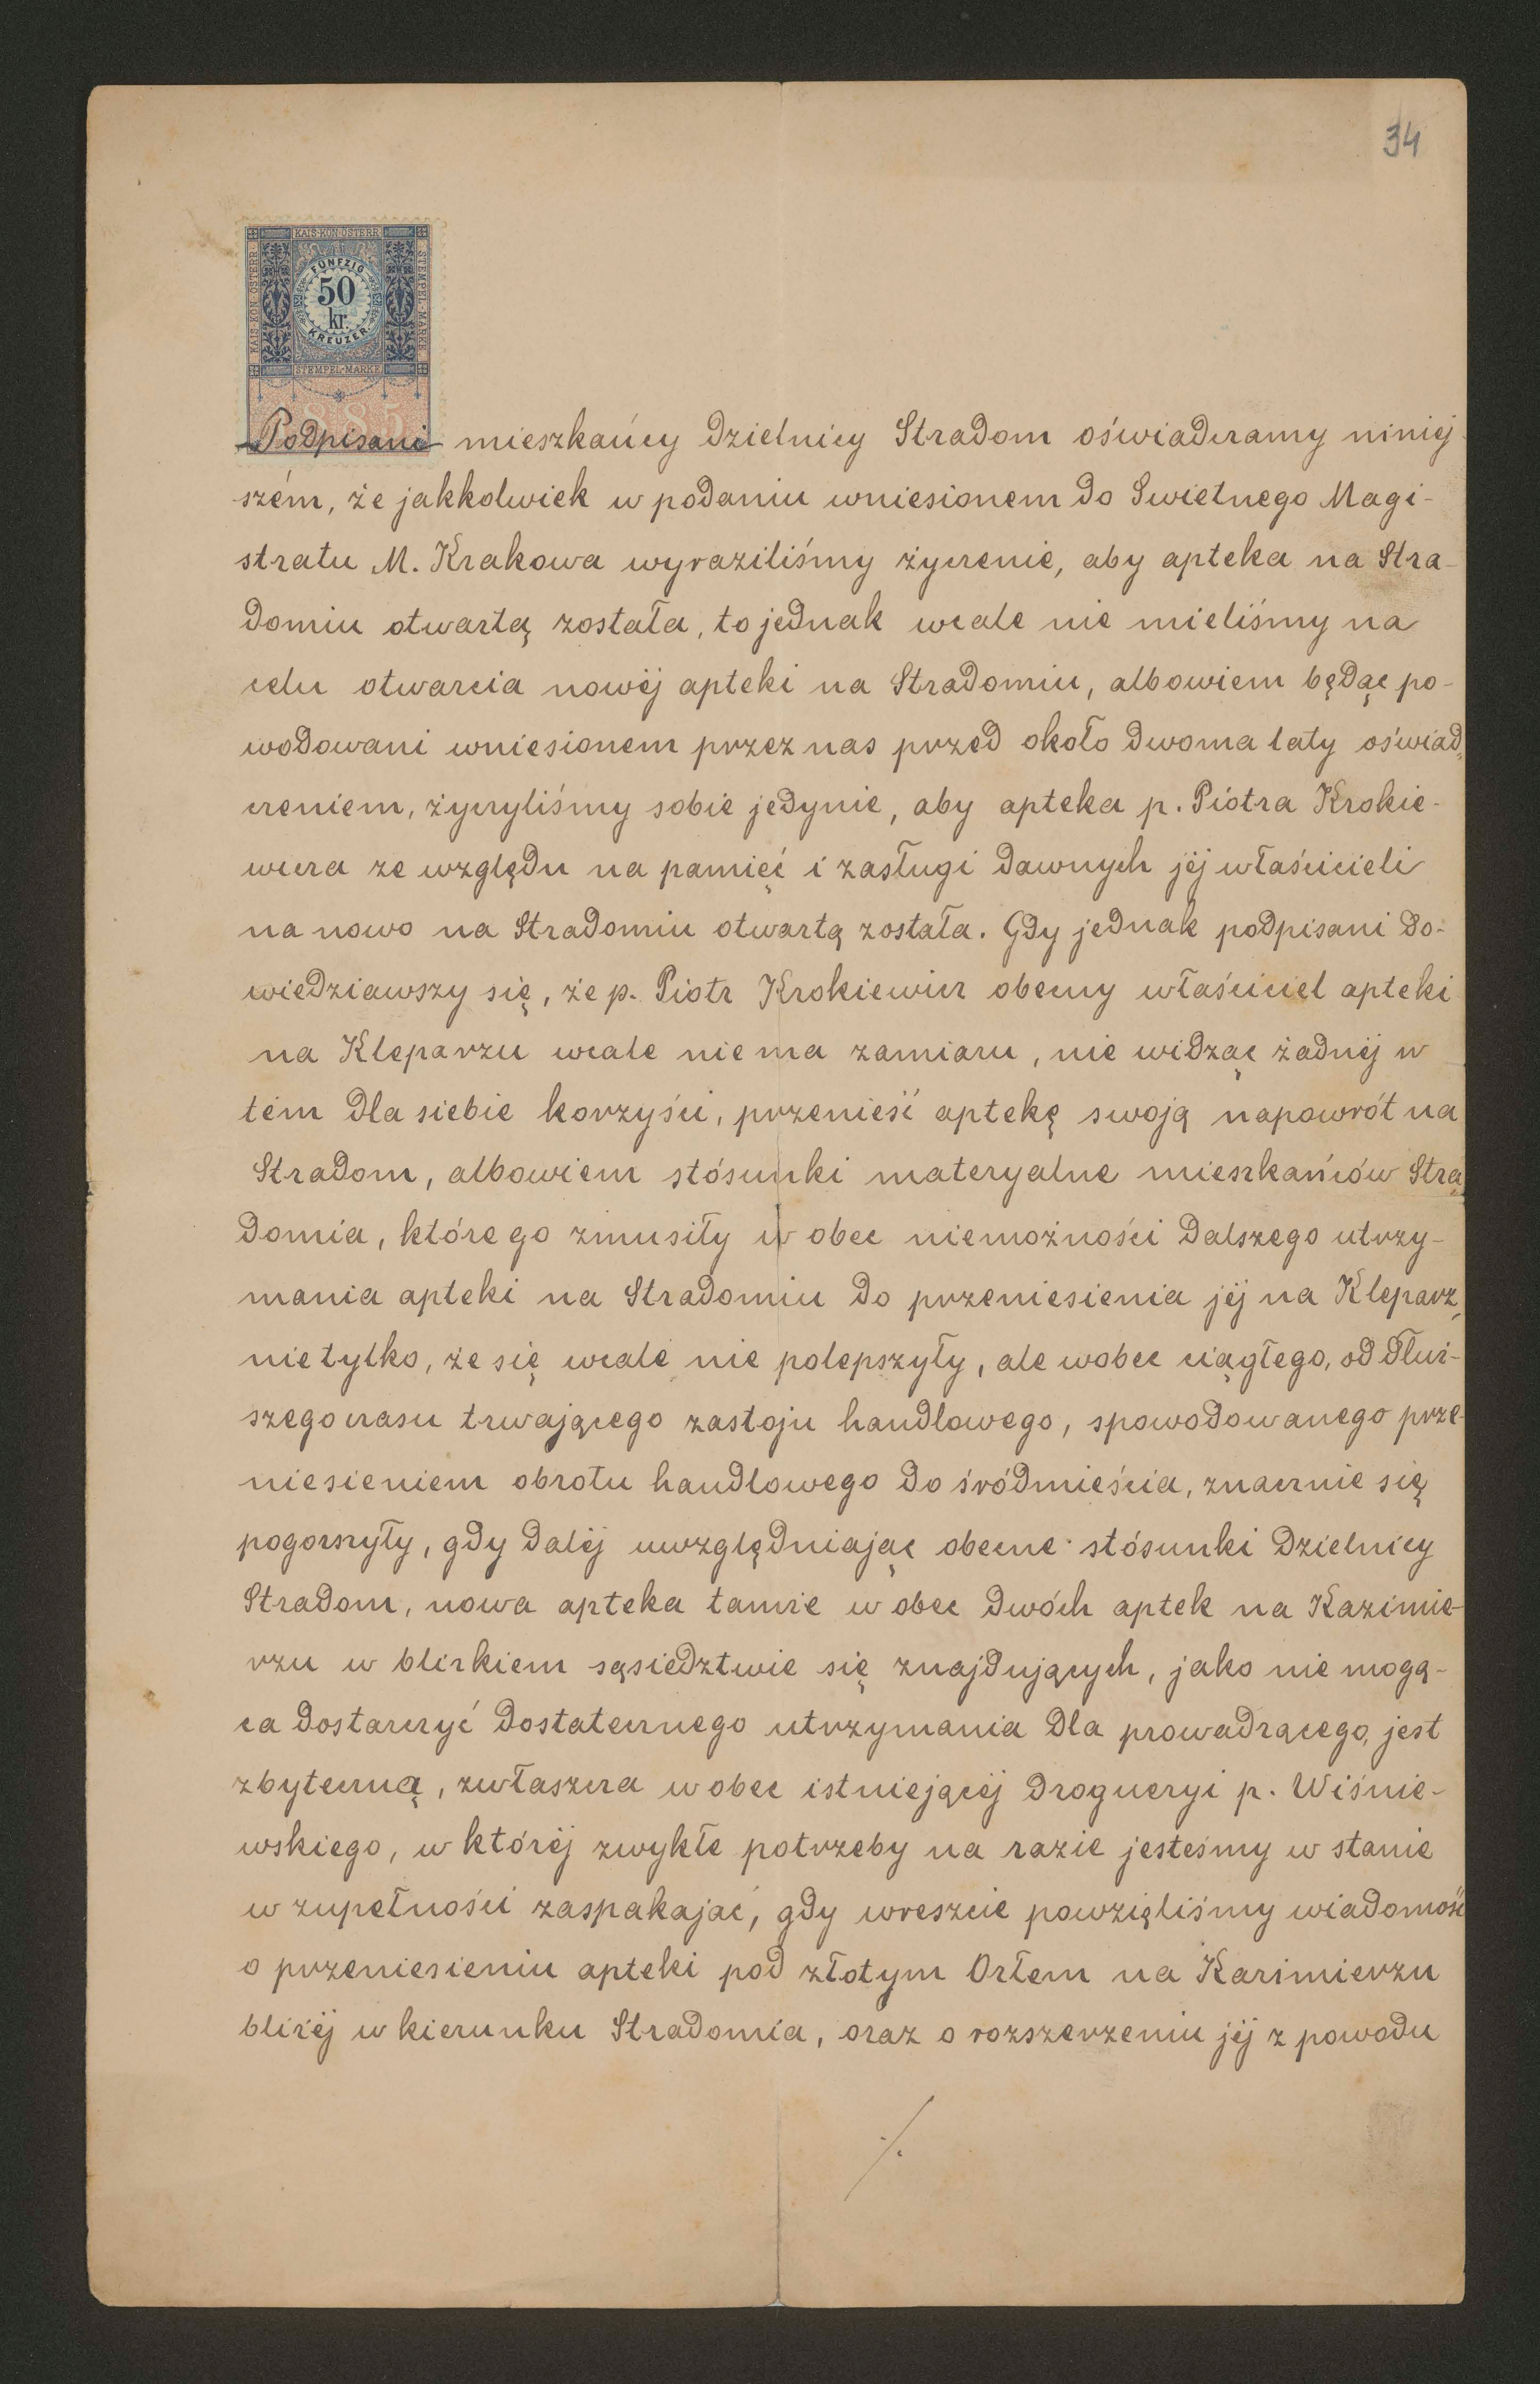 34
KAIS·KÖN·ÖSTERR.
KAIS·KÖN·ÖSTERR.
STEMPEL-MARKE
FÜNFZIG
50
kr.
KREUZER
STEMPEL-MARKE
1885
Podpisani mieszkańcy dzielnicy Stradom oświadczamy niniej
szém, że jakkolwiek w podaniu wniesionem do Swietnego Magi-
stratu M. Krakowa wyraziliśmy życzenie, aby apteka na Stra-
domiu otwartą została, to jednak wcale nie mieliśmy na
celu otwarcia nowéj apteki na Stradomiu, albowiem będąc po-
wodowani wniesionem przez nas przed około dwoma laty oświad-
czeniem, życzyliśmy sobie jedynie, aby apteka p. Piotra Krokie-
wicza ze względu na pamięć i zasługi dawnych jéj właścicieli
na nowo na Stradomiu otwartą została. Gdy jednak podpisani do-
wiedziawszy się, że p. Piotr Krokiewicz obecny właściciel apteki
na Kleparzu wcale nie ma zamiaru, nie widząc żadnéj w
tém dla siebie korzyści, przenieść aptekę swoją napowrót na
Stradom, albowiem stósunki materyalne mieszkańców Stra-
domia, które go zmusiły w obec niemożności dalszego utrzy-
mania apteki na Stradomiu do przeniesienia jéj na Kleparz,
nie tylko, że się wcale nie polepszyły, ale wobec ciągłego, od dłuż-
szego czasu trwającego zastoju handlowego, spowodowanego prze-
niesieniem obrotu handlowego do śródmieścia, znacznie się
pogorszyły, gdy daléj uwzględniając obecne stósunki dzielnicy
Stradom, nowa apteka tamże w obec dwóch aptek na Kazimie-
rzu w blizkiem sąsiedztwie się znajdujących, jako nie mogą-
ca dostarczyć dostatecznego utrzymania dla prowadzącego, jest
zbyteczną, zwłaszcza w obec istniejącéj drogueryi p. Wiśnie-
wskiego, w któréj zwykłe potrzeby na razie jesteśmy w stanie
w zupełności zaspakajać, gdy wreszcie powzięliśmy wiadomość
o przeniesieniu apteki pod złotym Orłem na Kazimierzu
bliżéj w kierunku Stradomia, oraz o rozszerzeniu jéj z powodu
./.